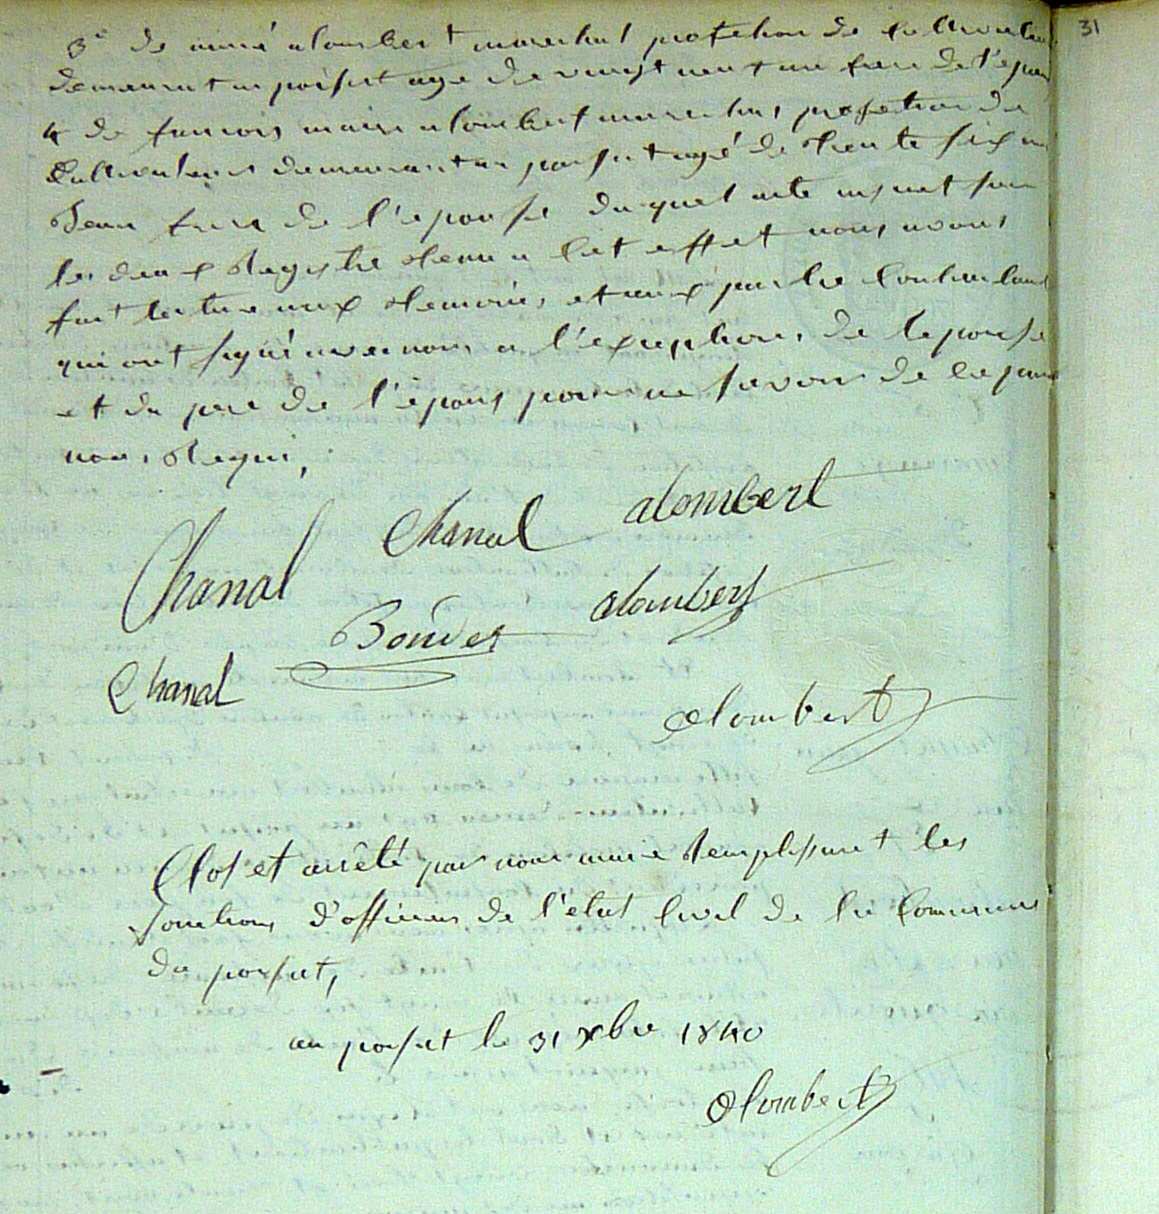 31
3° de aimé alombert marechal profetion de Cultivateur
demeurant au poisat age de vingt neuf ans frere de l'epouse
4 de francois marie alombert marechal profetion de
Cultivateur demeurant au poisat agé de trente six ans
Jean frere de l'epouse duquel acte inscrit sur
les deux Registre tenu a Cet effet nous avons
fait lecture aux temoins et aux partie Contractant
qui ont signé avec nous a l'exception de lepouse
et du pere de l'epous pour ne savoir de ce par
nous Requi,
Chanal Chanal alombert
Chanal Bondet alombert
alombert
Clos et arrêté par nous maire Remplissant les
fonctions d'officier de l'etat Civil de la Commune
du poisat,
au poisat le 31 xbre 1840
alombert